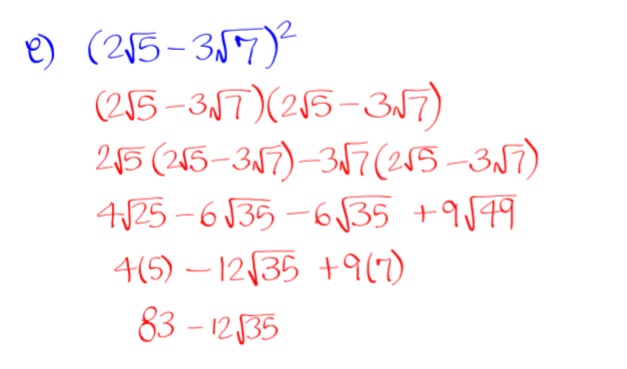 e) (2√5 - 3√7)²
(2√5 - 3√7)(2√5 - 3√7)
2√5(2√5 - 3√7) - 3√7(2√5 - 3√7)
4√25 - 6√35 - 6√35 + 9√49
4(5) - 12√35 + 9(7)
83 - 12√35